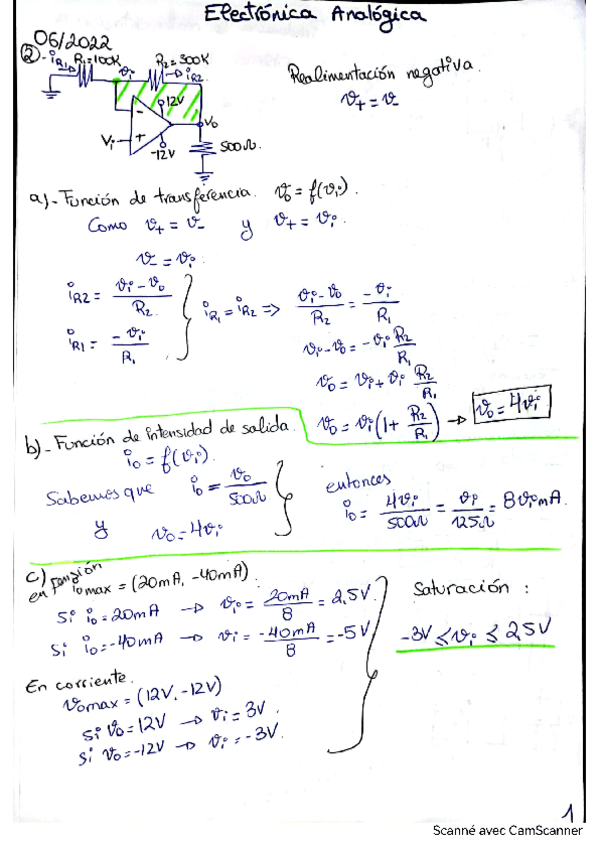 Electrónica Analógica
06/2022
②- iR1 R1=100K vi R2=300K iR2
12V
-
+
Vi
-12V
vo
500Ω
Realimentación negativa.
v+ = v-
a)- Función de transferencia. vo = f(vi).
Como v+ = v- y v+ = vi
v- = vi
iR2 = (vi - vo)/R2
iR1 = -vi/R1
iR1 = iR2 => (vi - vo)/R2 = -vi/R1
vi - vo = -vi R2/R1
vo = vi + vi R2/R1
vo = vi (1 + R2/R1) → vo = 4vi
b)- Función de intensidad de salida.
io = f(vi).
Sabemos que io = vo/500Ω
y vo = 4vi
entonces
io = 4vi/500Ω = vi/125Ω = 8vi mA.
c) en tensión
iomax = (20mA, -40mA).
Si io = 20mA → vi = 20mA/8 = 2,5V
Si io = -40mA → vi = -40mA/8 = -5V
En corriente.
vomax = (12V, -12V)
si vo = 12V → vi = 3V.
si vo = -12V → vi = -3V.
Saturación :
-3V ≤ vi ≤ 2,5V
1
Scanné avec CamScanner